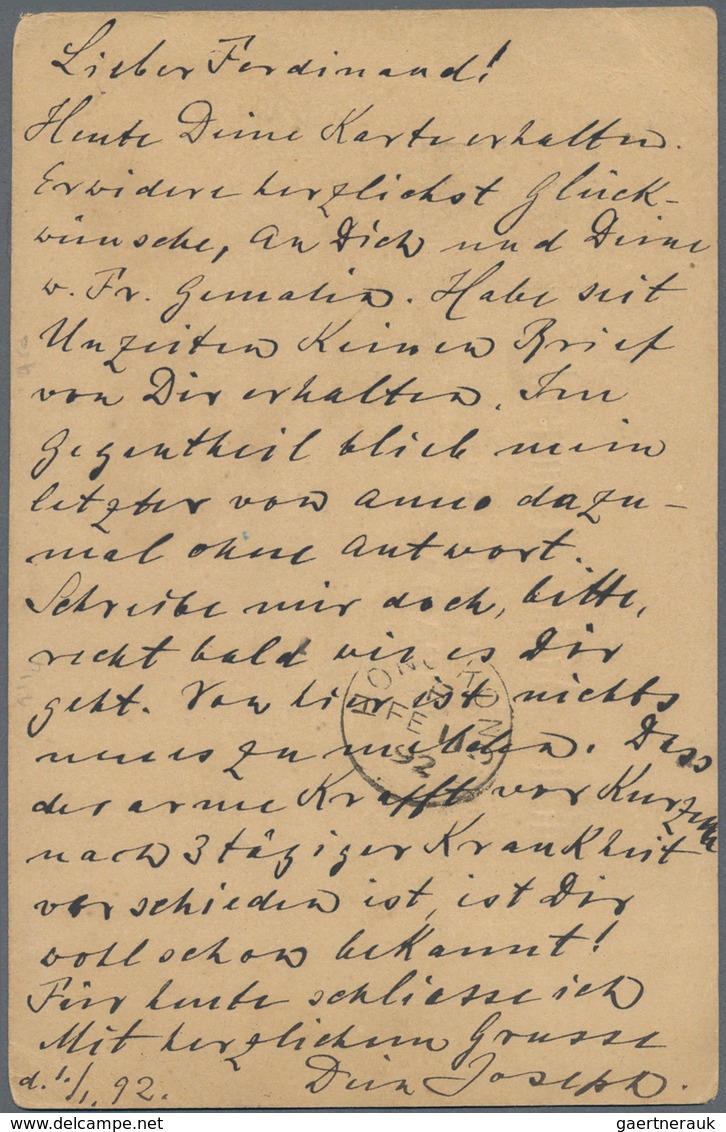 Lieber Ferdinand!
Heute Deine Karte erhalten.
Erwidere herzlichst Glück-
wünsche, an Dich und Deine
w. Fr. Gemalin. Habe seit
Unzeiten Keinen Brief
von Dir erhalten. Im
Gegentheil blieb mein
letzter von anno dazu-
mal ohne Antwort.
Schreibe mir doch, bitte,
recht bald wie es Dir
geht. Von hier ist nichts
neues zu melden. Dass
der arme Krafft vor Kurzem
nach 3 tägiger Krankheit
verschieden ist, ist Dir
wohl schon bekannt!
Für heute schliesse ich
Mit herzlichem Grusse
d. 1./1. 92. Dein Joseph.
HONG KONG
FE
92
gaertnerauk